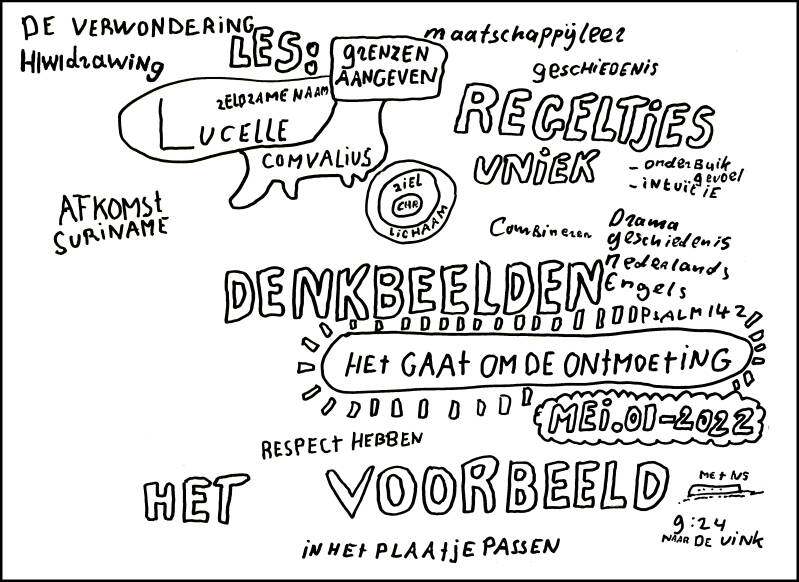 DE VERWONDERING
HIWIDRAWING
LES:
GRENZEN
AANGEVEN
maatschappijleer
geschiedenis
ZELDZAME NAAM
LUCELLE
COMVALIUS
REGELTJES
UNIEK
- onderbuik
gevoel
- intuïcie
ZIEL
CHR
LICHAAM
AFKOMST
SURINAME
Combineren
Drama
geschiedenis
nederlands
Engels
DENKBEELDEN
PSALM 142
HET GAAT OM DE ONTMOETING
MEI.01-2022
RESPECT HEBBEN
HET VOORBEELD
MET NS
9:24
NAAR DE VINK
IN HET PLAATJE PASSEN